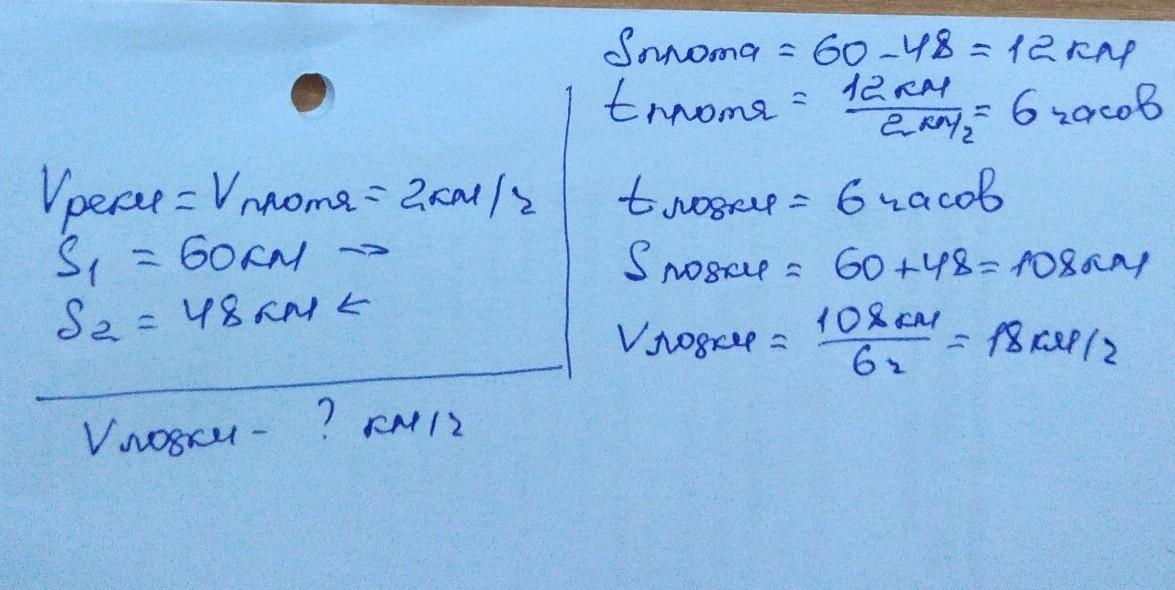 Vреки = Vплота = 2 км/ч
S₁ = 60 км →
S₂ = 48 км ←
Vлодки - ? км/ч
Sплота = 60 - 48 = 12 км
tплота = 12 км / 2 км/ч = 6 часов
tлодки = 6 часов
Sлодки = 60 + 48 = 108 км
Vлодки = 108 км / 6 ч = 18 км/ч